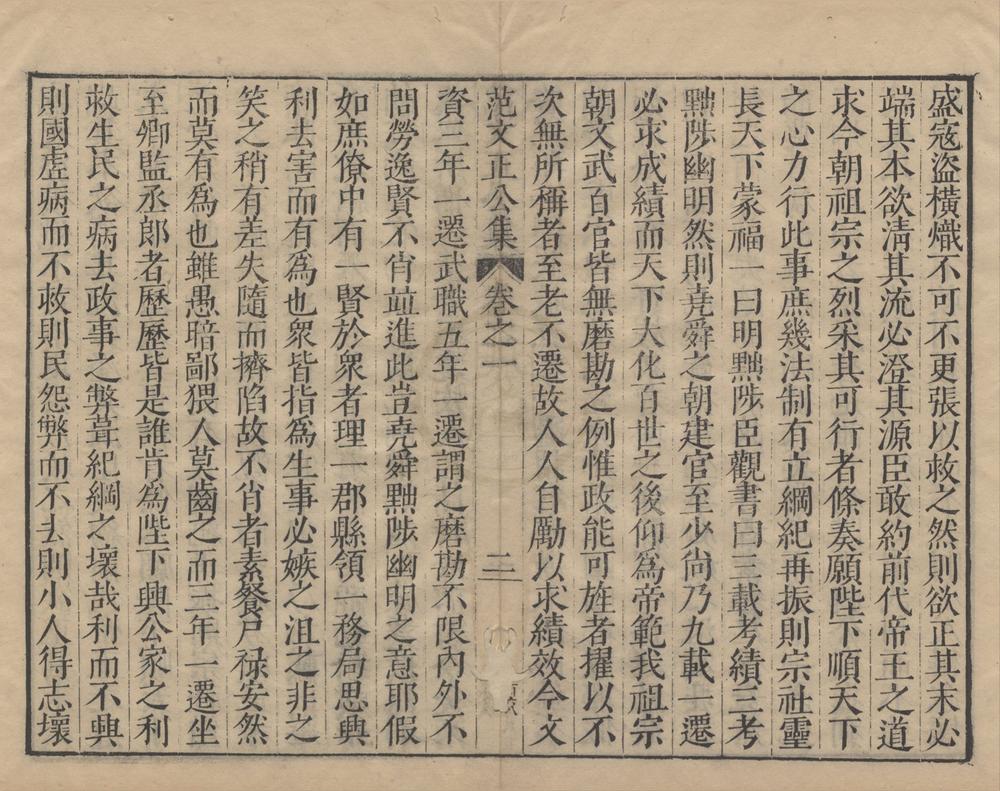 盛寇盜橫熾不可不更張以救之然則欲正其末必
端其本欲清其流必澄其源臣敢約前代帝王之道
求今朝祖宗之烈采其可行者條奏願陛下順天下
之心力行此事庶幾法制有立綱紀再振則宗社靈
長天下蒙福一曰明黜陟臣觀書曰三載考績三考
黜陟幽明然則堯舜之朝建官至少尙乃九載一遷
必求成績而天下大化百世之後仰爲帝範我祖宗
朝文武百官皆無磨勘之例惟政能可旌者擢以不
次無所稱者至老不遷故人人自勵以求績效今文
范文正公集 卷之一 二
資三年一遷武職五年一遷謂之磨勘不限內外不
問勞逸賢不肖並進此豈堯舜黜陟幽明之意耶假
如庶僚中有一賢於衆者理一郡縣領一務局思興
利去害而有爲也衆皆指爲生事必嫉之沮之非之
笑之稍有差失隨而擠陷故不肖者素餐尸祿安然
而莫有爲也雖愚暗鄙猥人莫齒之而三年一遷坐
至卿監丞郎者歷歷皆是誰肯爲陛下興公家之利
救生民之病去政事之弊葺紀綱之壞哉利而不興
則國虛病而不救則民怨弊而不去則小人得志壞